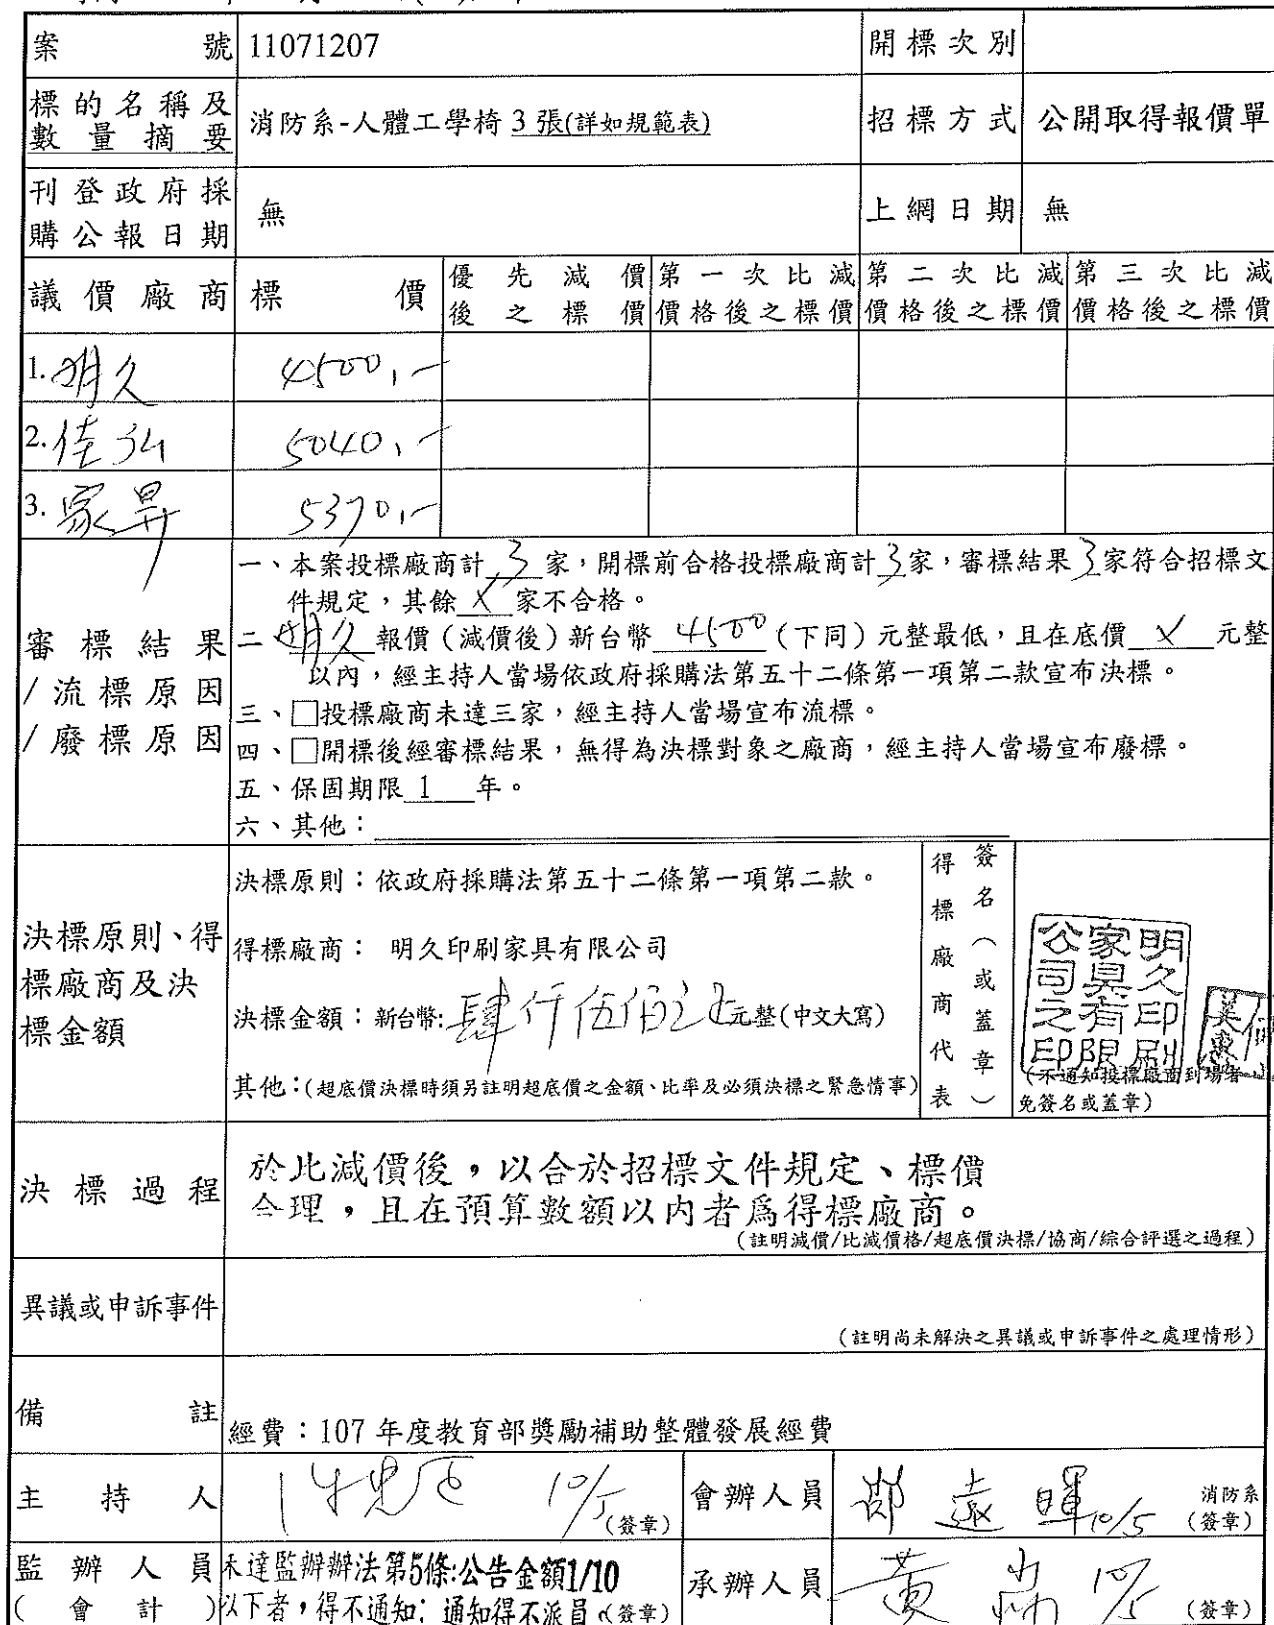 案號 11071207 開標次別
標的名稱及數量摘要 消防系-人體工學椅 3 張(詳如規範表) 招標方式 公開取得報價單
刊登政府採購公報日期 無 上網日期 無
議價廠商 標價 優先減價後之標價 第一次比減價格後之標價 第二次比減價格後之標價 第三次比減價格後之標價
1. 明久 4500,-
2. 佳弘 5040,-
3. 家昇 5370,-
審標結果/流標原因/廢標原因
一、本案投標廠商計 3 家，開標前合格投標廠商計 3 家，審標結果 3 家符合招標文
件規定，其餘 X 家不合格。
二 明久 報價（減價後）新台幣 4500 (下同) 元整最低，且在底價 X 元整
以內，經主持人當場依政府採購法第五十二條第一項第二款宣布決標。
三、□投標廠商未達三家，經主持人當場宣布流標。
四、□開標後經審標結果，無得為決標對象之廠商，經主持人當場宣布廢標。
五、保固期限 1 年。
六、其他：
決標原則、得標廠商及決標金額
決標原則：依政府採購法第五十二條第一項第二款。
得標廠商： 明久印刷家具有限公司
決標金額：新台幣:肆仟伍佰元整(中文大寫)
其他：(超底價決標時須另註明超底價之金額、比率及必須決標之緊急情事)
得標廠商代表
簽名（或蓋章）
明久印刷
家具有限
公司之印
(不通知投標廠商到場者
免簽名或蓋章)
決標過程
於比減價後，以合於招標文件規定、標價
合理，且在預算數額以內者為得標廠商。
(註明減價/比減價格/超底價決標/協商/綜合評選之過程)
異議或申訴事件
(註明尚未解決之異議或申訴事件之處理情形)
備註
經費：107 年度教育部獎勵補助整體發展經費
主持人 10/5 (簽章) 會辦人員 邵遠暉 10/5 消防系 (簽章)
監辦人員(會計) 未達監辦辦法第5條:公告金額1/10
以下者，得不通知; 通知得不派員。(簽章)
承辦人員 黃 10/5 (簽章)